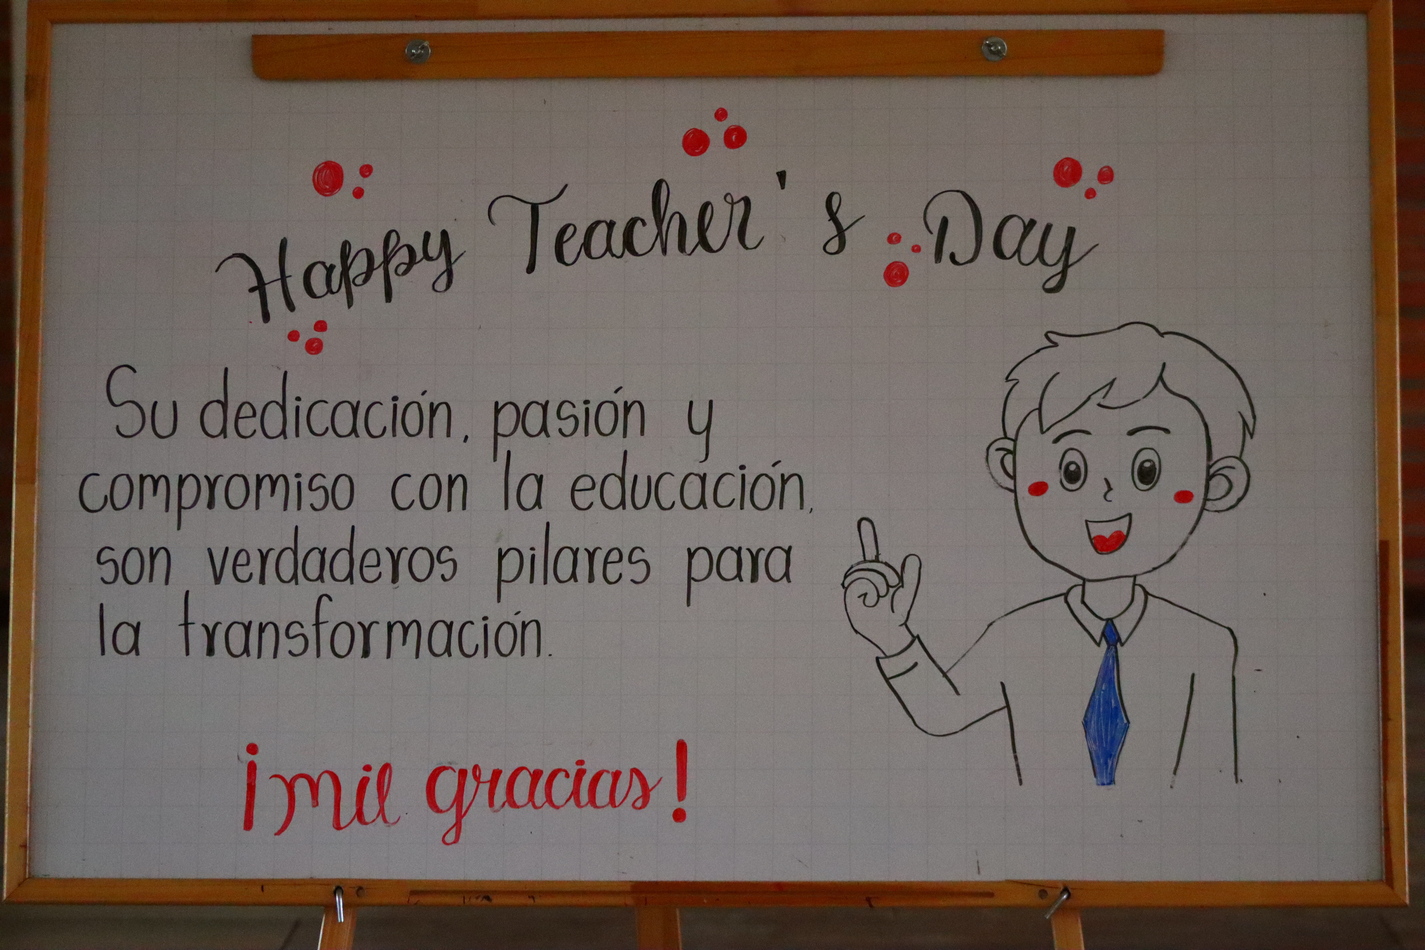 Happy Teacher's Day
Su dedicación, pasión y
compromiso con la educación,
son verdaderos pilares para
la transformación.
¡mil gracias!